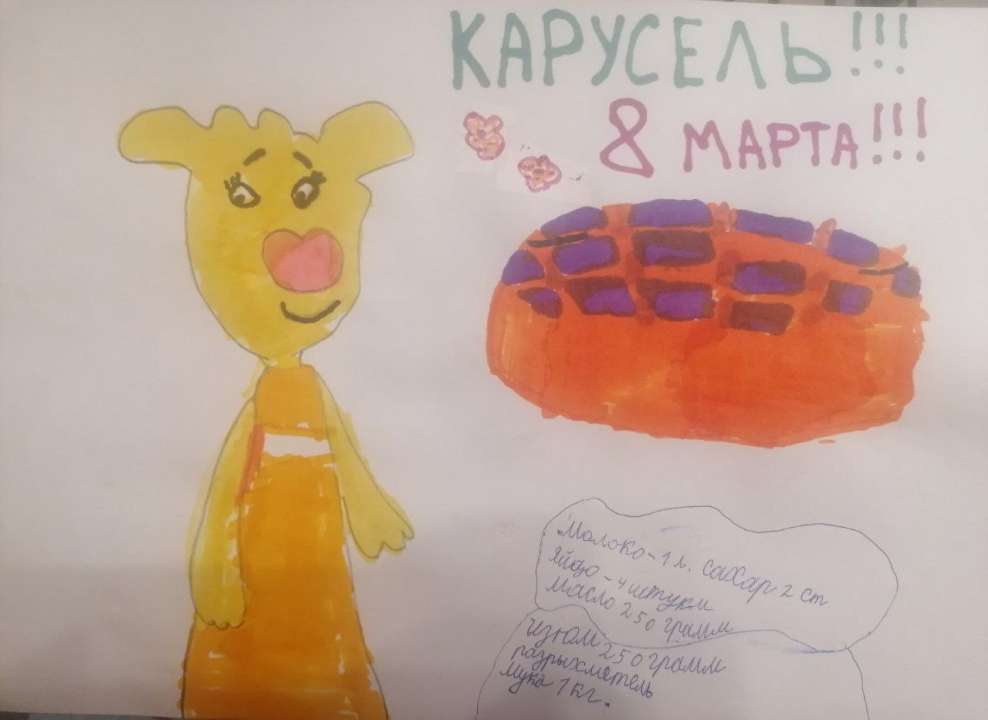 КАРУСЕЛЬ!!!
8 МАРТА!!!
Молоко-1л. сахар 2 ст
Яйцо - 4 штуки
масло 250 грамм
изюм 250 грамм
разрыхметель
мука 1 кг.